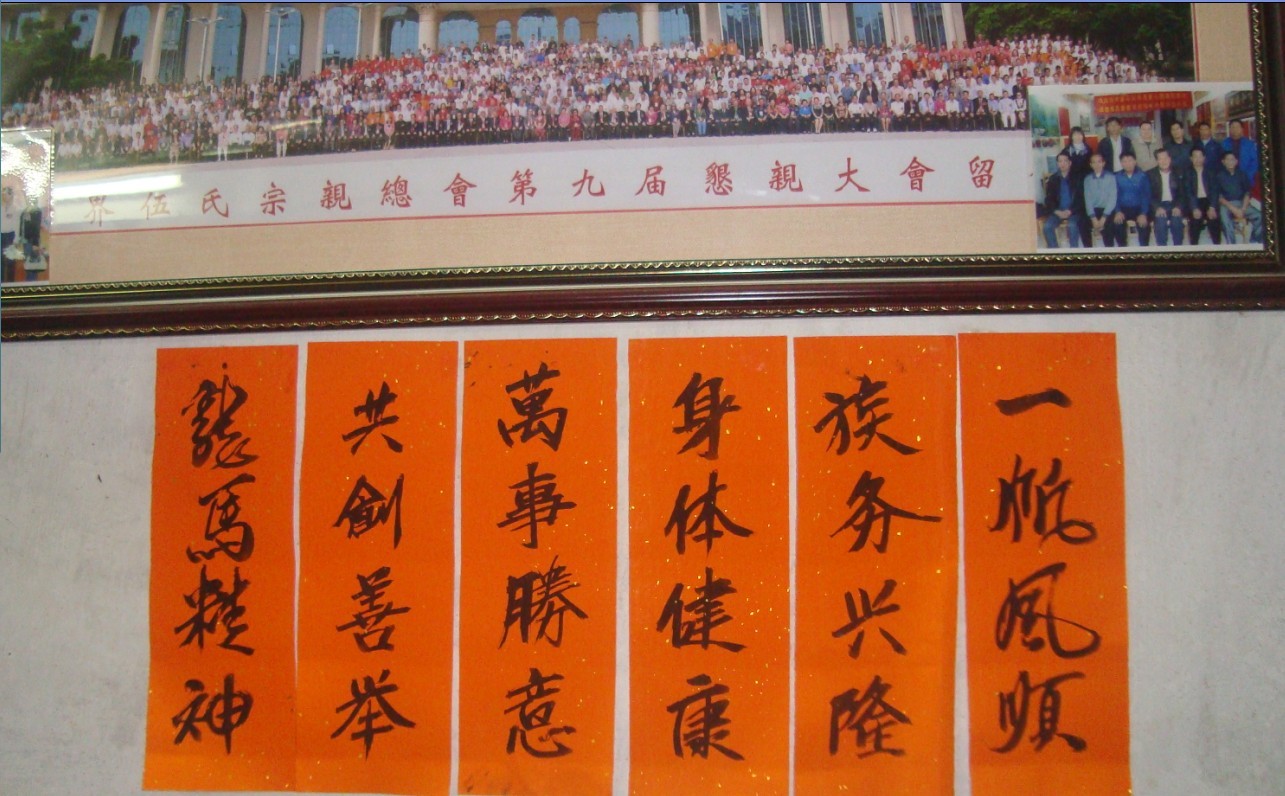 界伍氏宗親總會第九届懇親大會留
一帆風順
族务兴隆
身体健康
萬事勝意
共創善举
龍馬精神